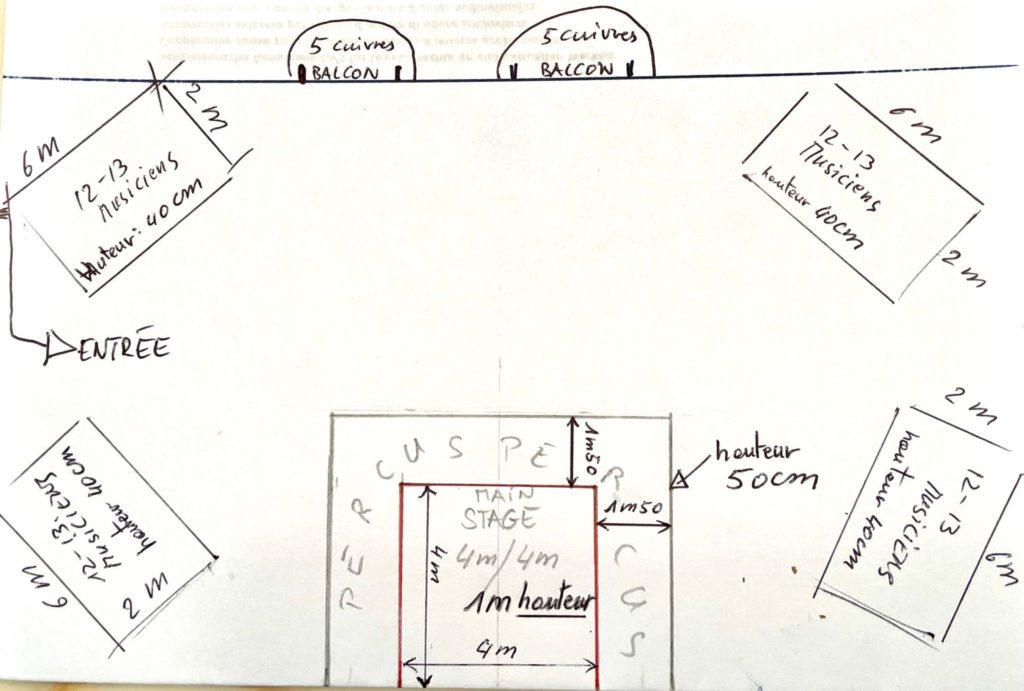 5 cuivres
BALCON
5 cuivres
BALCON
6 m
2 m
12-13
Musiciens
Hauteur: 40 cm
6 m
12-13
Musiciens
hauteur 40cm
2 m
ENTRÉE
12-13.
MUSICIENS
hauteur 40cm
6 m
2 m
PERCUS
PERCUS
1m50
hauteur
50cm
1m50
MAIN
STAGE
4m/4m
1m hauteur
4m
4m
2 m
12-13
MUSICIENS
hauteur 40cm
6m